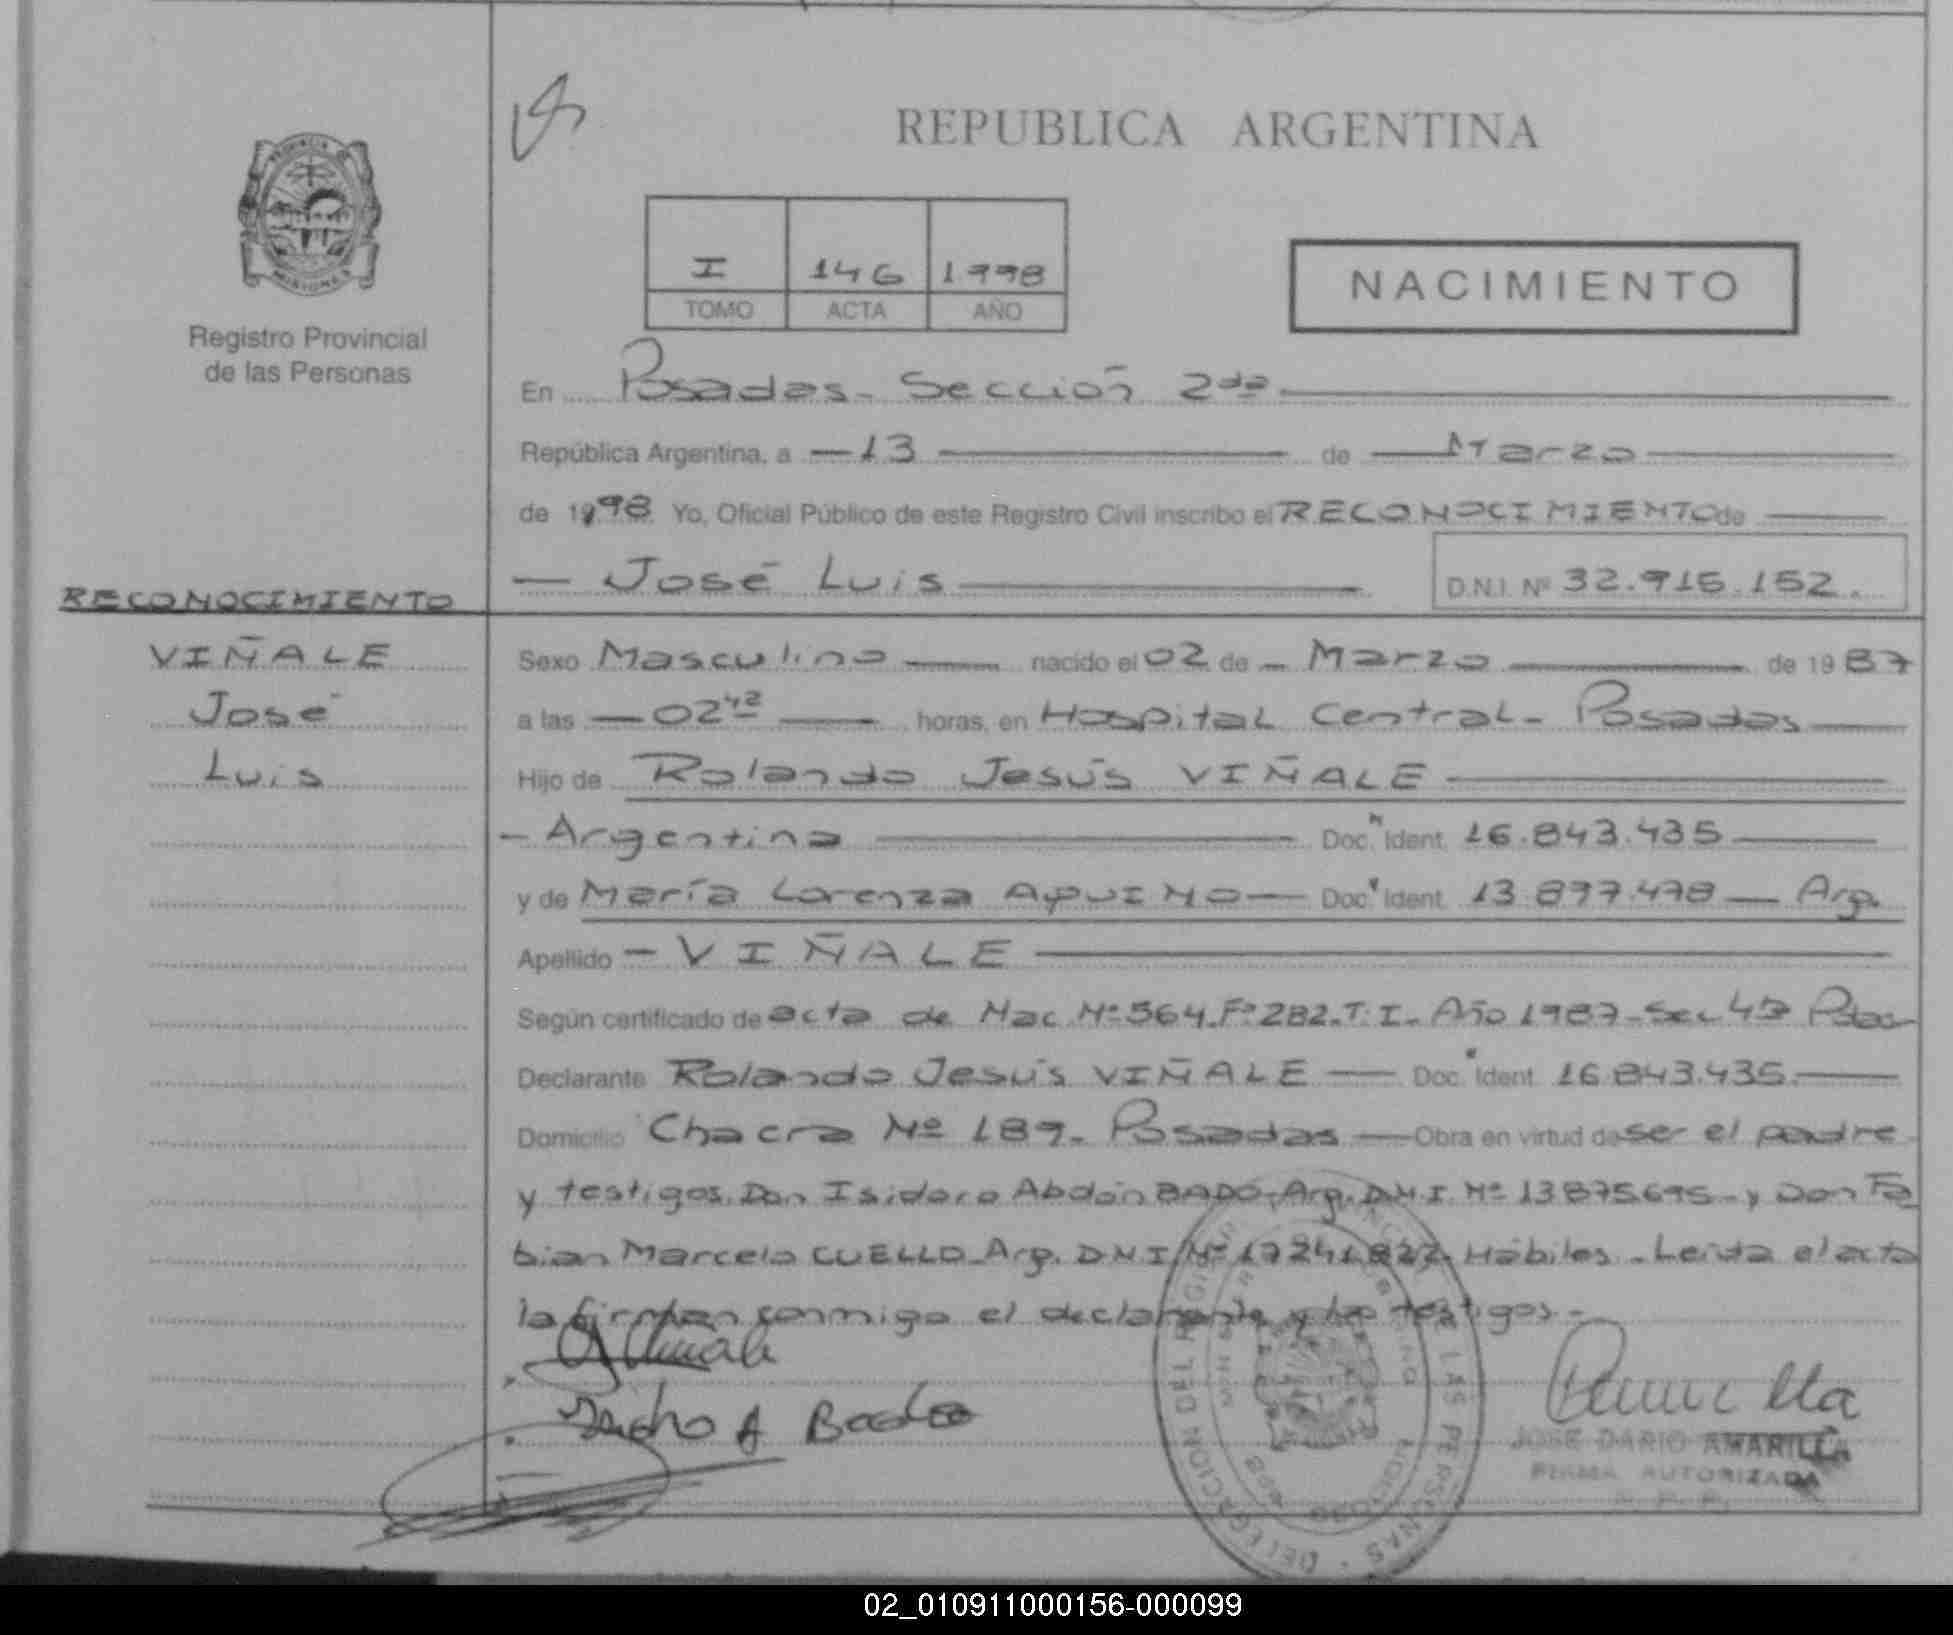 REPUBLICA ARGENTINA
I 146 1998
TOMO ACTA AÑO
NACIMIENTO
Registro Provincial
de las Personas
En Posadas - Sección 2da
República Argentina, a 13 de Marzo
de 1998 Yo, Oficial Público de este Registro Civil inscribo el RECONOCIMIENTO de
José Luis D.N.I. Nº 32.915.152.
RECONOCIMIENTO
VIÑALE
José
Luis
Sexo Masculino nacido el 02 de Marzo de 1987
a las 02 42 horas, en Hospital Central - Posadas
Hijo de Rolando Jesús VIÑALE
Argentina Doc. Ident. 16.843.435
y de María Lorenza AQUINO Doc. Ident. 13.897.478 Arg.
Apellido VIÑALE
Según certificado de acta de Nac. Nº 564. Fº 282. T. I. Año 1987 - Sec 4ª
Declarante Rolando Jesús VIÑALE Doc. Ident. 16.843.435.
Domicilio Chacra Nº 189. Posadas Obra en virtud de ser el padre
y testigos. Don Isidoro Abdón BADO. Arg. D.N.I. Nº 13875695 - y Don Fa
bian Marcelo CUELLO. Arg. D.N.I. Nº 17241822. Hábiles. Leída el acta
la firman conmigo el declarante y los testigos.
JOSE DARIO AMARILLA
FIRMA AUTORIZADA
02_010911000156-000099